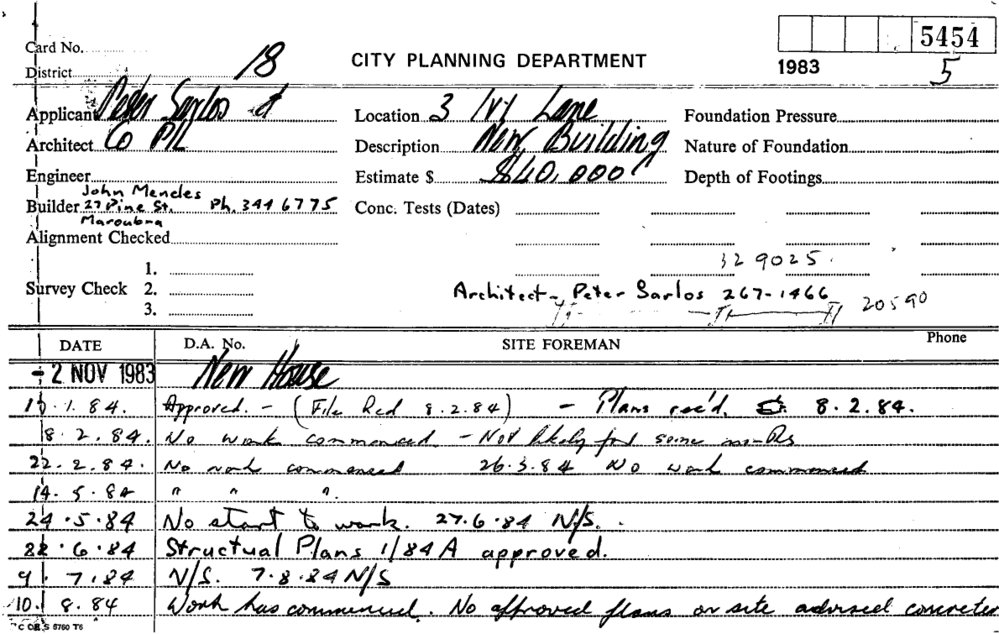 5454
Card No.
District 18
CITY PLANNING DEPARTMENT
1983 5
Applicant Peter Sarlos &
Location 3 Ivy Lane
Foundation Pressure
Architect Co P/L
Description New Building
Nature of Foundation
Engineer
Estimate $ $40,000
Depth of Footings
John Mendes
Builder 27 Pine St. Ph. 344 6775
Maroubra
Conc. Tests (Dates)
Alignment Checked
329025.
1.
Survey Check 2.
Architect - Peter Sarlos 267-1466
3.
20590
DATE D.A. No. SITE FOREMAN Phone
- 2 NOV 1983 New House
1.84. Approved. - (File Red 8.2.84) - Plans rec'd. 8.2.84.
8.2.84. No work commenced - Not likely for some
22.2.84. No work commenced 26.3.84 No work commenced
14.5.84 " " ".
24.5.84 No start to work. 27.6.84 N/S.
22.6.84 Structual Plans 1/84A approved.
9.7.84 N/S. 7.8.84 N/S
10.8.84 Work has commenced. No approved plans on site advised concreter